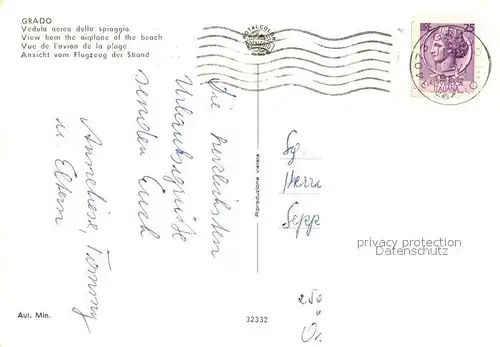 GRADO
Veduta aerea della spiaggia
View from the airplane of the beach
Vue de l'avion de la plage
Ansicht vom Flugzeug der Strand
25
ITALIANA
Die herzlichsten
Urlaubsgrüße
senden Euch
Anneliese, Tommy
u. Eltern
Riproduzione vietata
Sg.
Herrn
Sepp
privacy protection
Datenschutz
250
Aut. Min.
32332